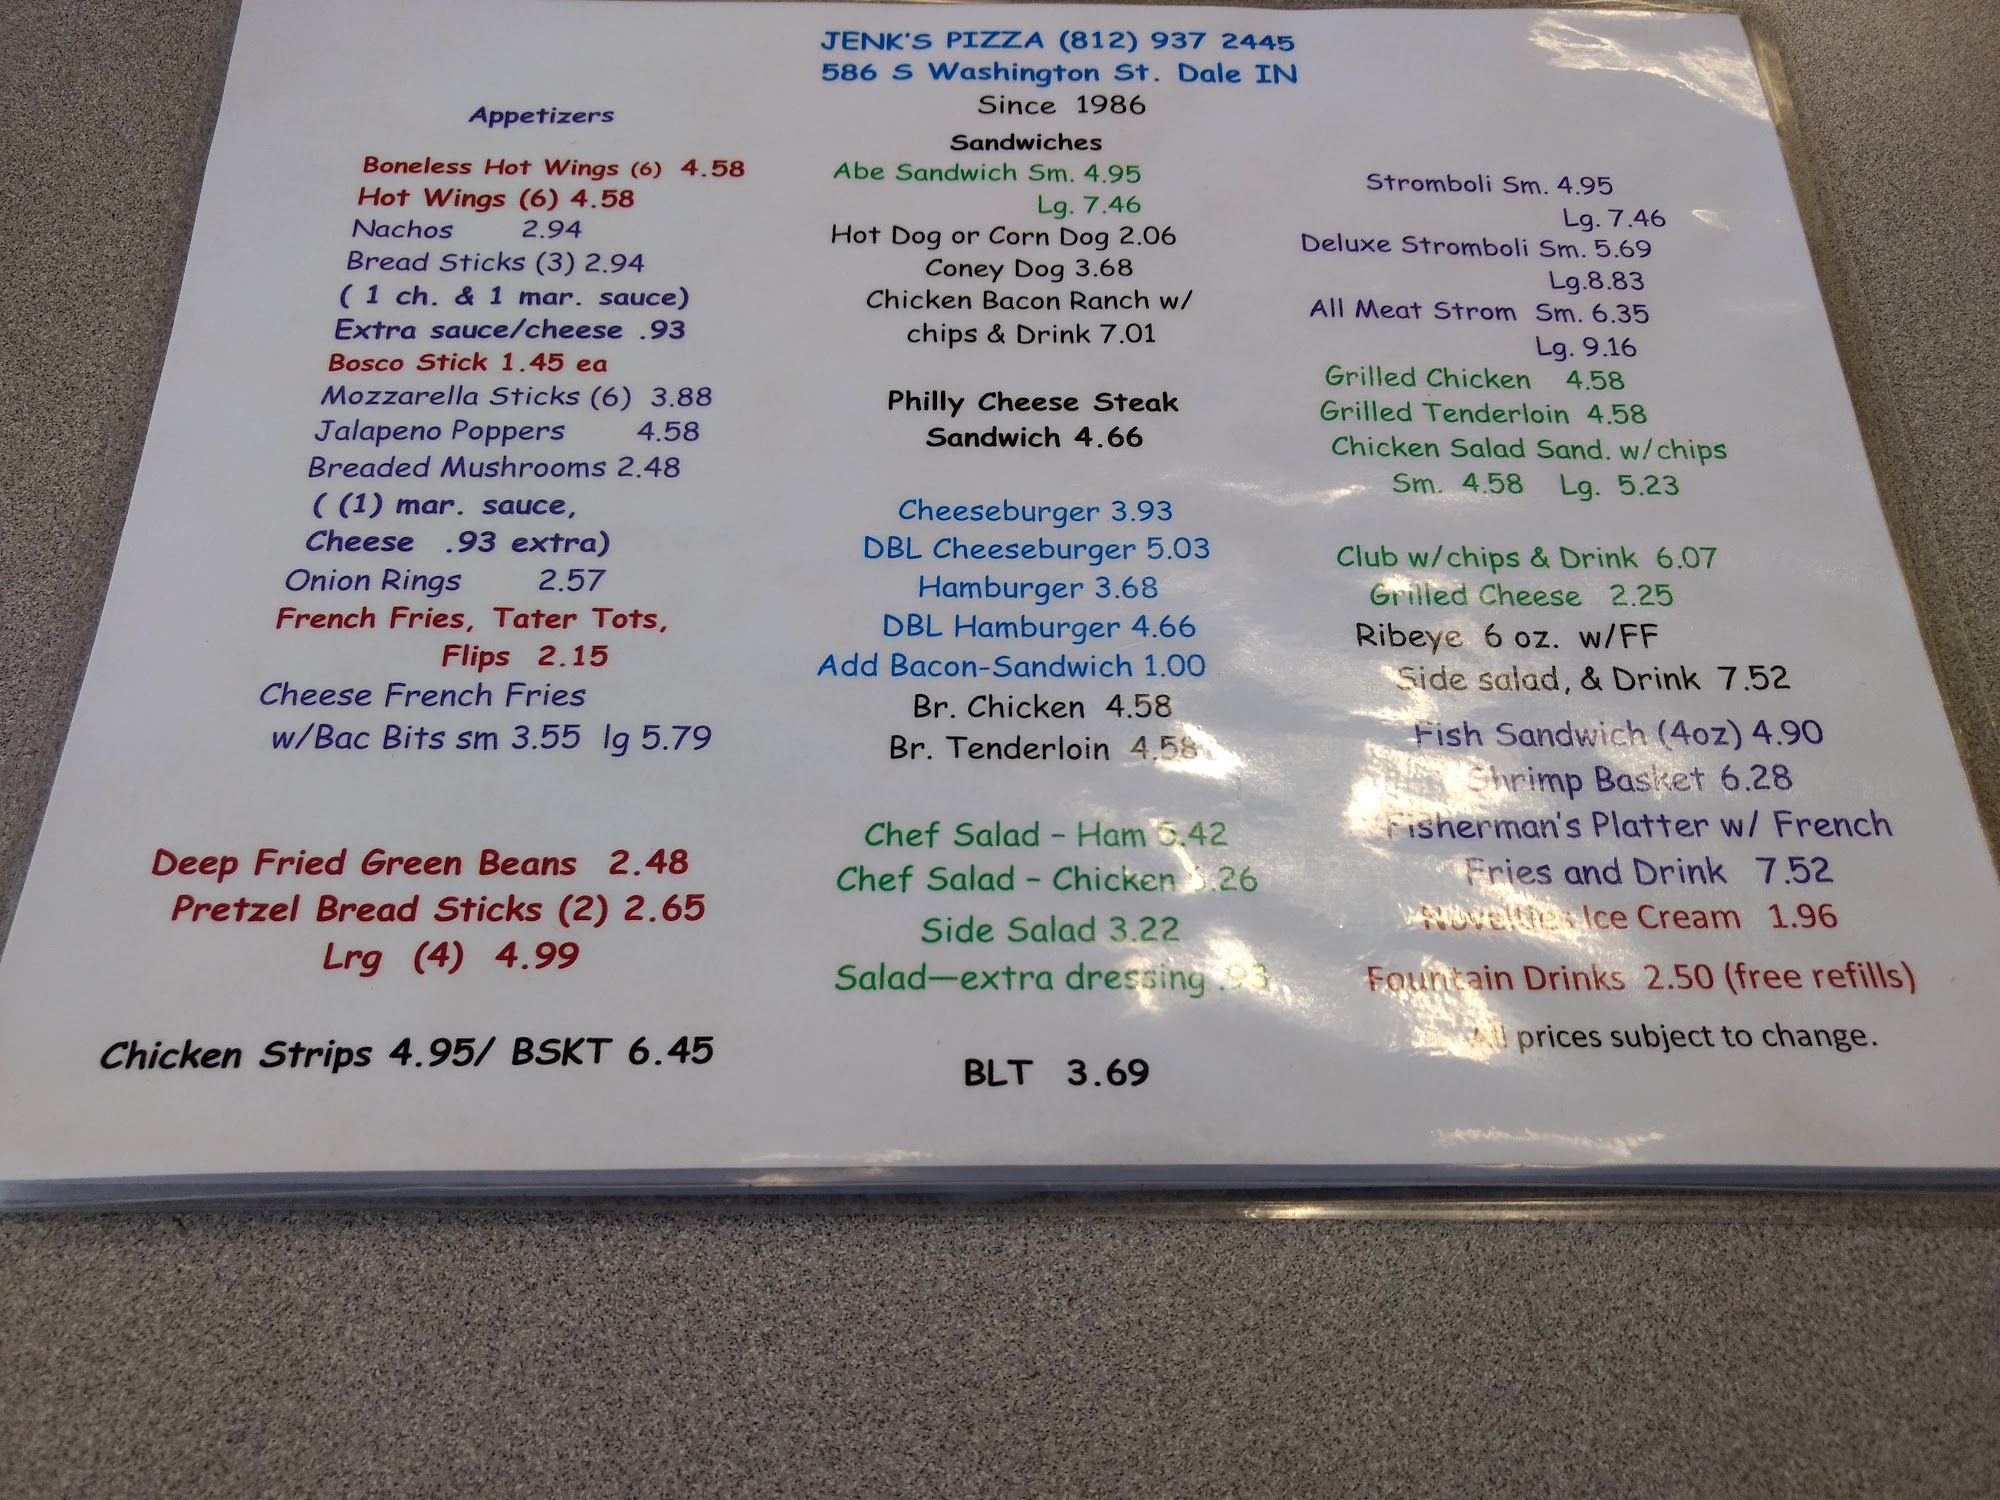 JENK'S PIZZA (812) 937 2445
586 S Washington St. Dale IN
Since 1986
Appetizers
Boneless Hot Wings (6) 4.58
Hot Wings (6) 4.58
Nachos 2.94
Bread Sticks (3) 2.94
( 1 ch. & 1 mar. sauce)
Extra sauce/cheese .93
Bosco Stick 1.45 ea
Mozzarella Sticks (6) 3.88
Jalapeno Poppers 4.58
Breaded Mushrooms 2.48
( (1) mar. sauce,
Cheese .93 extra)
Onion Rings 2.57
French Fries, Tater Tots,
Flips 2.15
Cheese French Fries
w/Bac Bits sm 3.55 lg 5.79
Deep Fried Green Beans 2.48
Pretzel Bread Sticks (2) 2.65
Lrg (4) 4.99
Chicken Strips 4.95/ BSKT 6.45
Sandwiches
Abe Sandwich Sm. 4.95
Lg. 7.46
Hot Dog or Corn Dog 2.06
Coney Dog 3.68
Chicken Bacon Ranch w/
chips & Drink 7.01
Philly Cheese Steak
Sandwich 4.66
Cheeseburger 3.93
DBL Cheeseburger 5.03
Hamburger 3.68
DBL Hamburger 4.66
Add Bacon-Sandwich 1.00
Br. Chicken 4.58
Br. Tenderloin 4.58
Chef Salad - Ham
Chef Salad - Chicken
Side Salad 3.22
Salad—extra dressing .93
BLT 3.69
Stromboli Sm. 4.95
Lg. 7.46
Deluxe Stromboli Sm. 5.69
Lg.8.83
All Meat Strom Sm. 6.35
Lg. 9.16
Grilled Chicken 4.58
Grilled Tenderloin 4.58
Chicken Salad Sand. w/chips
Sm. 4.58 Lg. 5.23
Club w/chips & Drink 6.07
Grilled Cheese 2.25
Ribeye 6 oz. w/FF
Side salad, & Drink 7.52
Fish Sandwich (4oz) 4.90
Shrimp Basket 6.28
Fisherman's Platter w/ French
Fries and Drink 7.52
Novelties Ice Cream 1.96
Fountain Drinks 2.50 (free refills)
All prices subject to change.